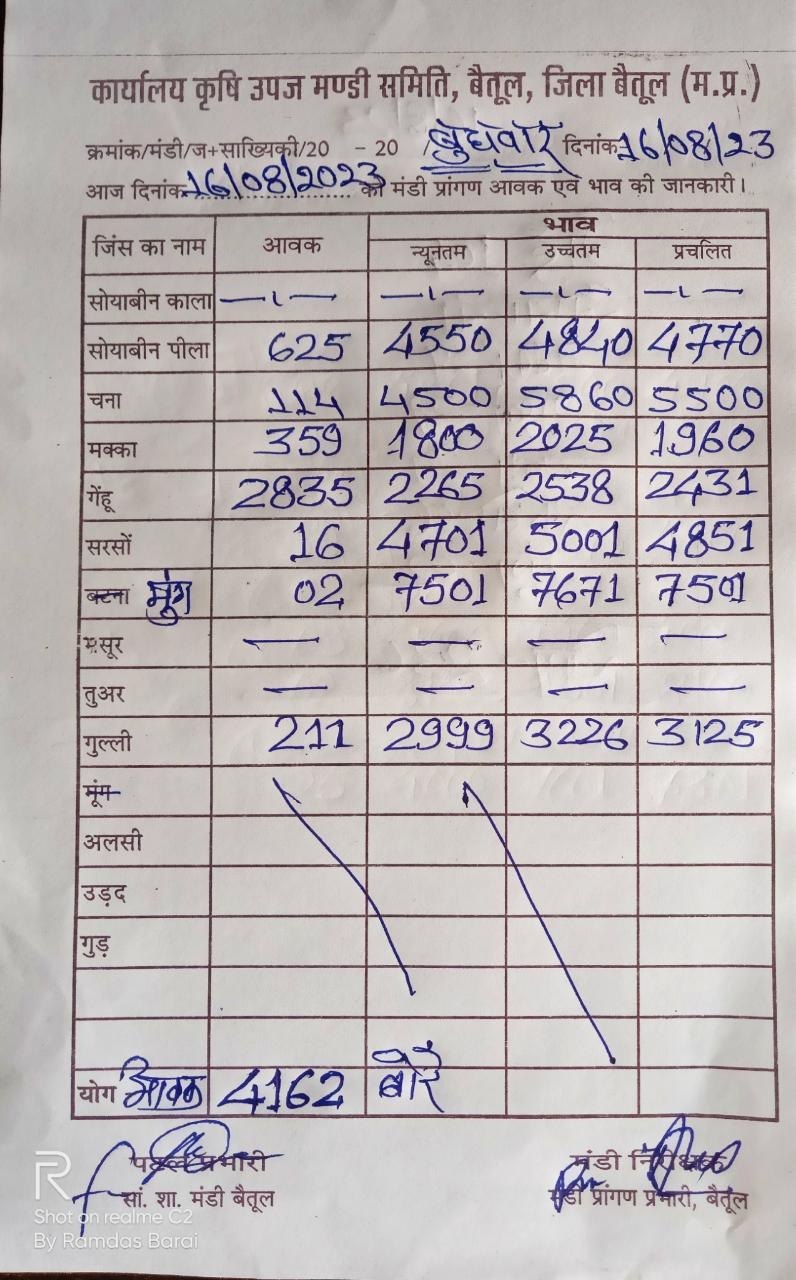 कार्यालय कृषि उपज मण्डी समिति, बैतूल, जिला बैतूल (म.प्र.)
क्रमांक/मंडी/ज+साख्यिकी/20 - 20 /बुधवार दिनांक 16/08/23
आज दिनांक 16/08/2023 को मंडी प्रांगण आवक एवं भाव की जानकारी।
जिंस का नाम आवक भाव
न्यूनतम उच्चतम प्रचलित
सोयाबीन काला —ı— —ı— —ı— —ı—
सोयाबीन पीला 625 4550 4840 4770
चना 114 4500 5860 5500
मक्का 359 1800 2025 1960
गेंहू 2835 2265 2538 2431
सरसों 16 4701 5001 4851
बटना मुंग 02 7501 7671 7501
मसूर — — — —
तुअर — — — —
गुल्ली 211 2999 3226 3125
मूंग
अलसी
उड़द
गुड़
योग आवक 4162 बोरे
प्रभारी मंडी निरीक्षक
सां. शा. मंडी बैतूल मंडी प्रांगण प्रभारी, बैतूल
R
Shot on realme C2
By Ramdas Barai